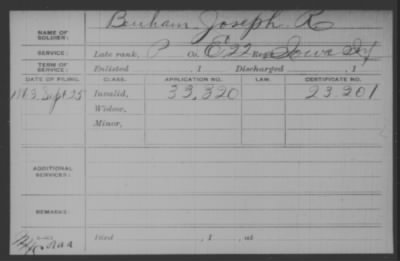 NAME OF SOLDIER: Benham, Joseph R
SERVICE: Late rank, P Co. E, 22 Reg. Iowa Inf
TERM OF SERVICE: Enlisted , 1 Discharged , 1
DATE OF FILING. CLASS. APPLICATION NO. LAW. CERTIFICATE NO.
1863 Sept 25 Invalid, 33,320 23.201
Widow,
Minor,
ADDITIONAL SERVICES:
REMARKS:
Died , 1 , at